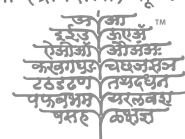 अ आ TM
इईउ ऊएऍ
ऐओऔ ऑअंअः
कखगघङ चछजझञ
टठडढण तथदधन
पफबभम यरलवश
षसह ळक्षज्ञ